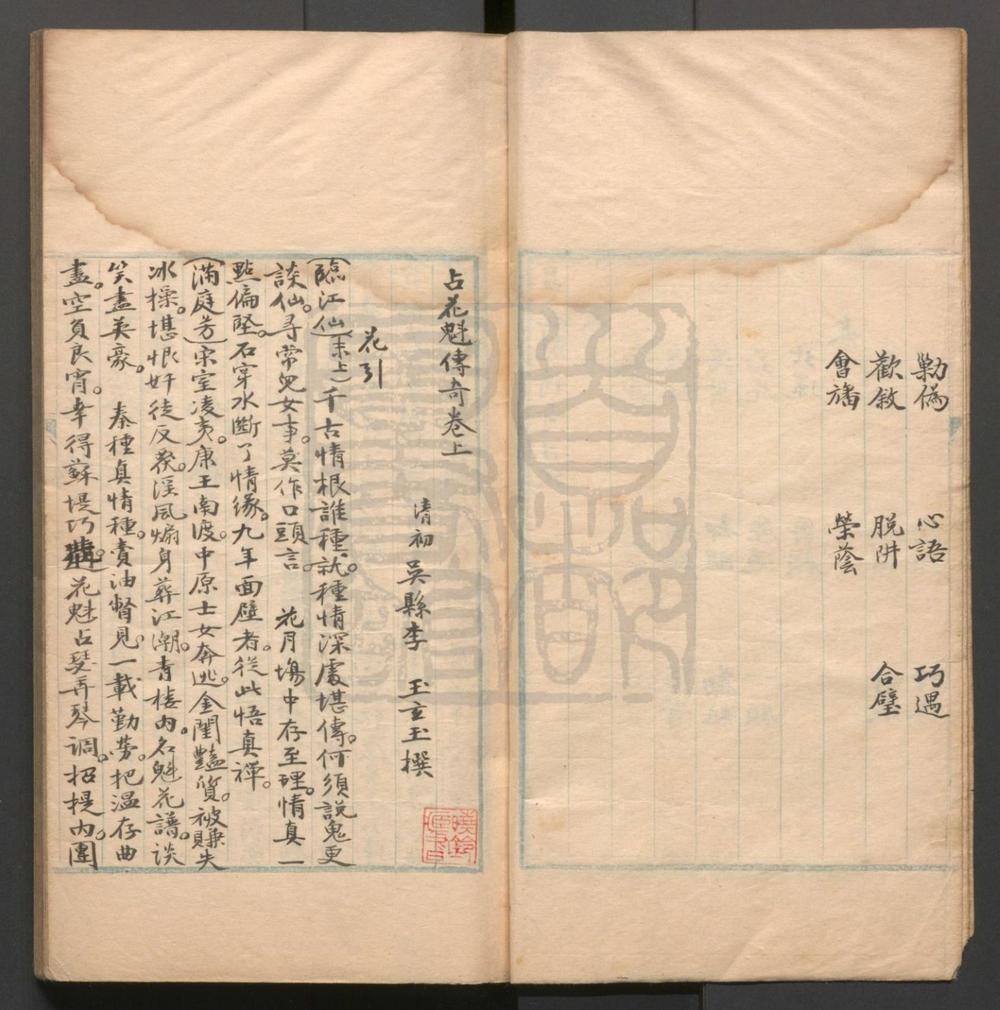 勸僞　心語　巧遇
歡敘　脱阱　合璧
會旛　榮蔭
占花魁傳奇卷上
清初　吳縣李　玉玄玉撰
花引
(臨江仙)(末上)千古情根誰種就。種情深處堪傳。何須説鬼更
談仙。尋常兒女事。莫作口頭言。　花月場中存至理。情真一
點偏堅。石穿水斷了情緣。九年面壁者。從此悟真禪。
(滿庭芳)宋室凌夷。康王南渡。中原士女奔逃。金閨豔質。被賺失
冰操。堪恨奸徒反覆。溪風煽身葬江潮。青樓内。名魁花譜。談
笑盡英豪。　秦種真情種。賣油瞥見。一載勤勞。把温存曲
盡。空負良宵。幸得蘇堤巧。花魁占瑟再琴調。招提内。團